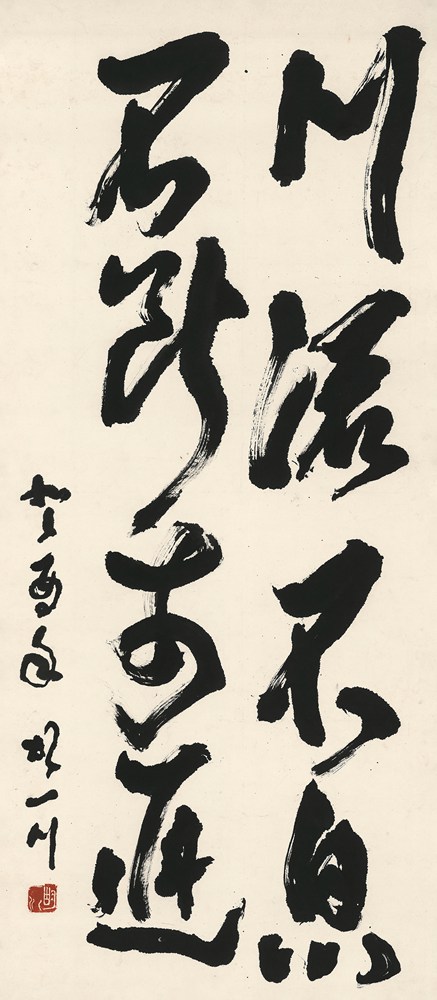 川流不息
不断前进
癸酉年 胡一川